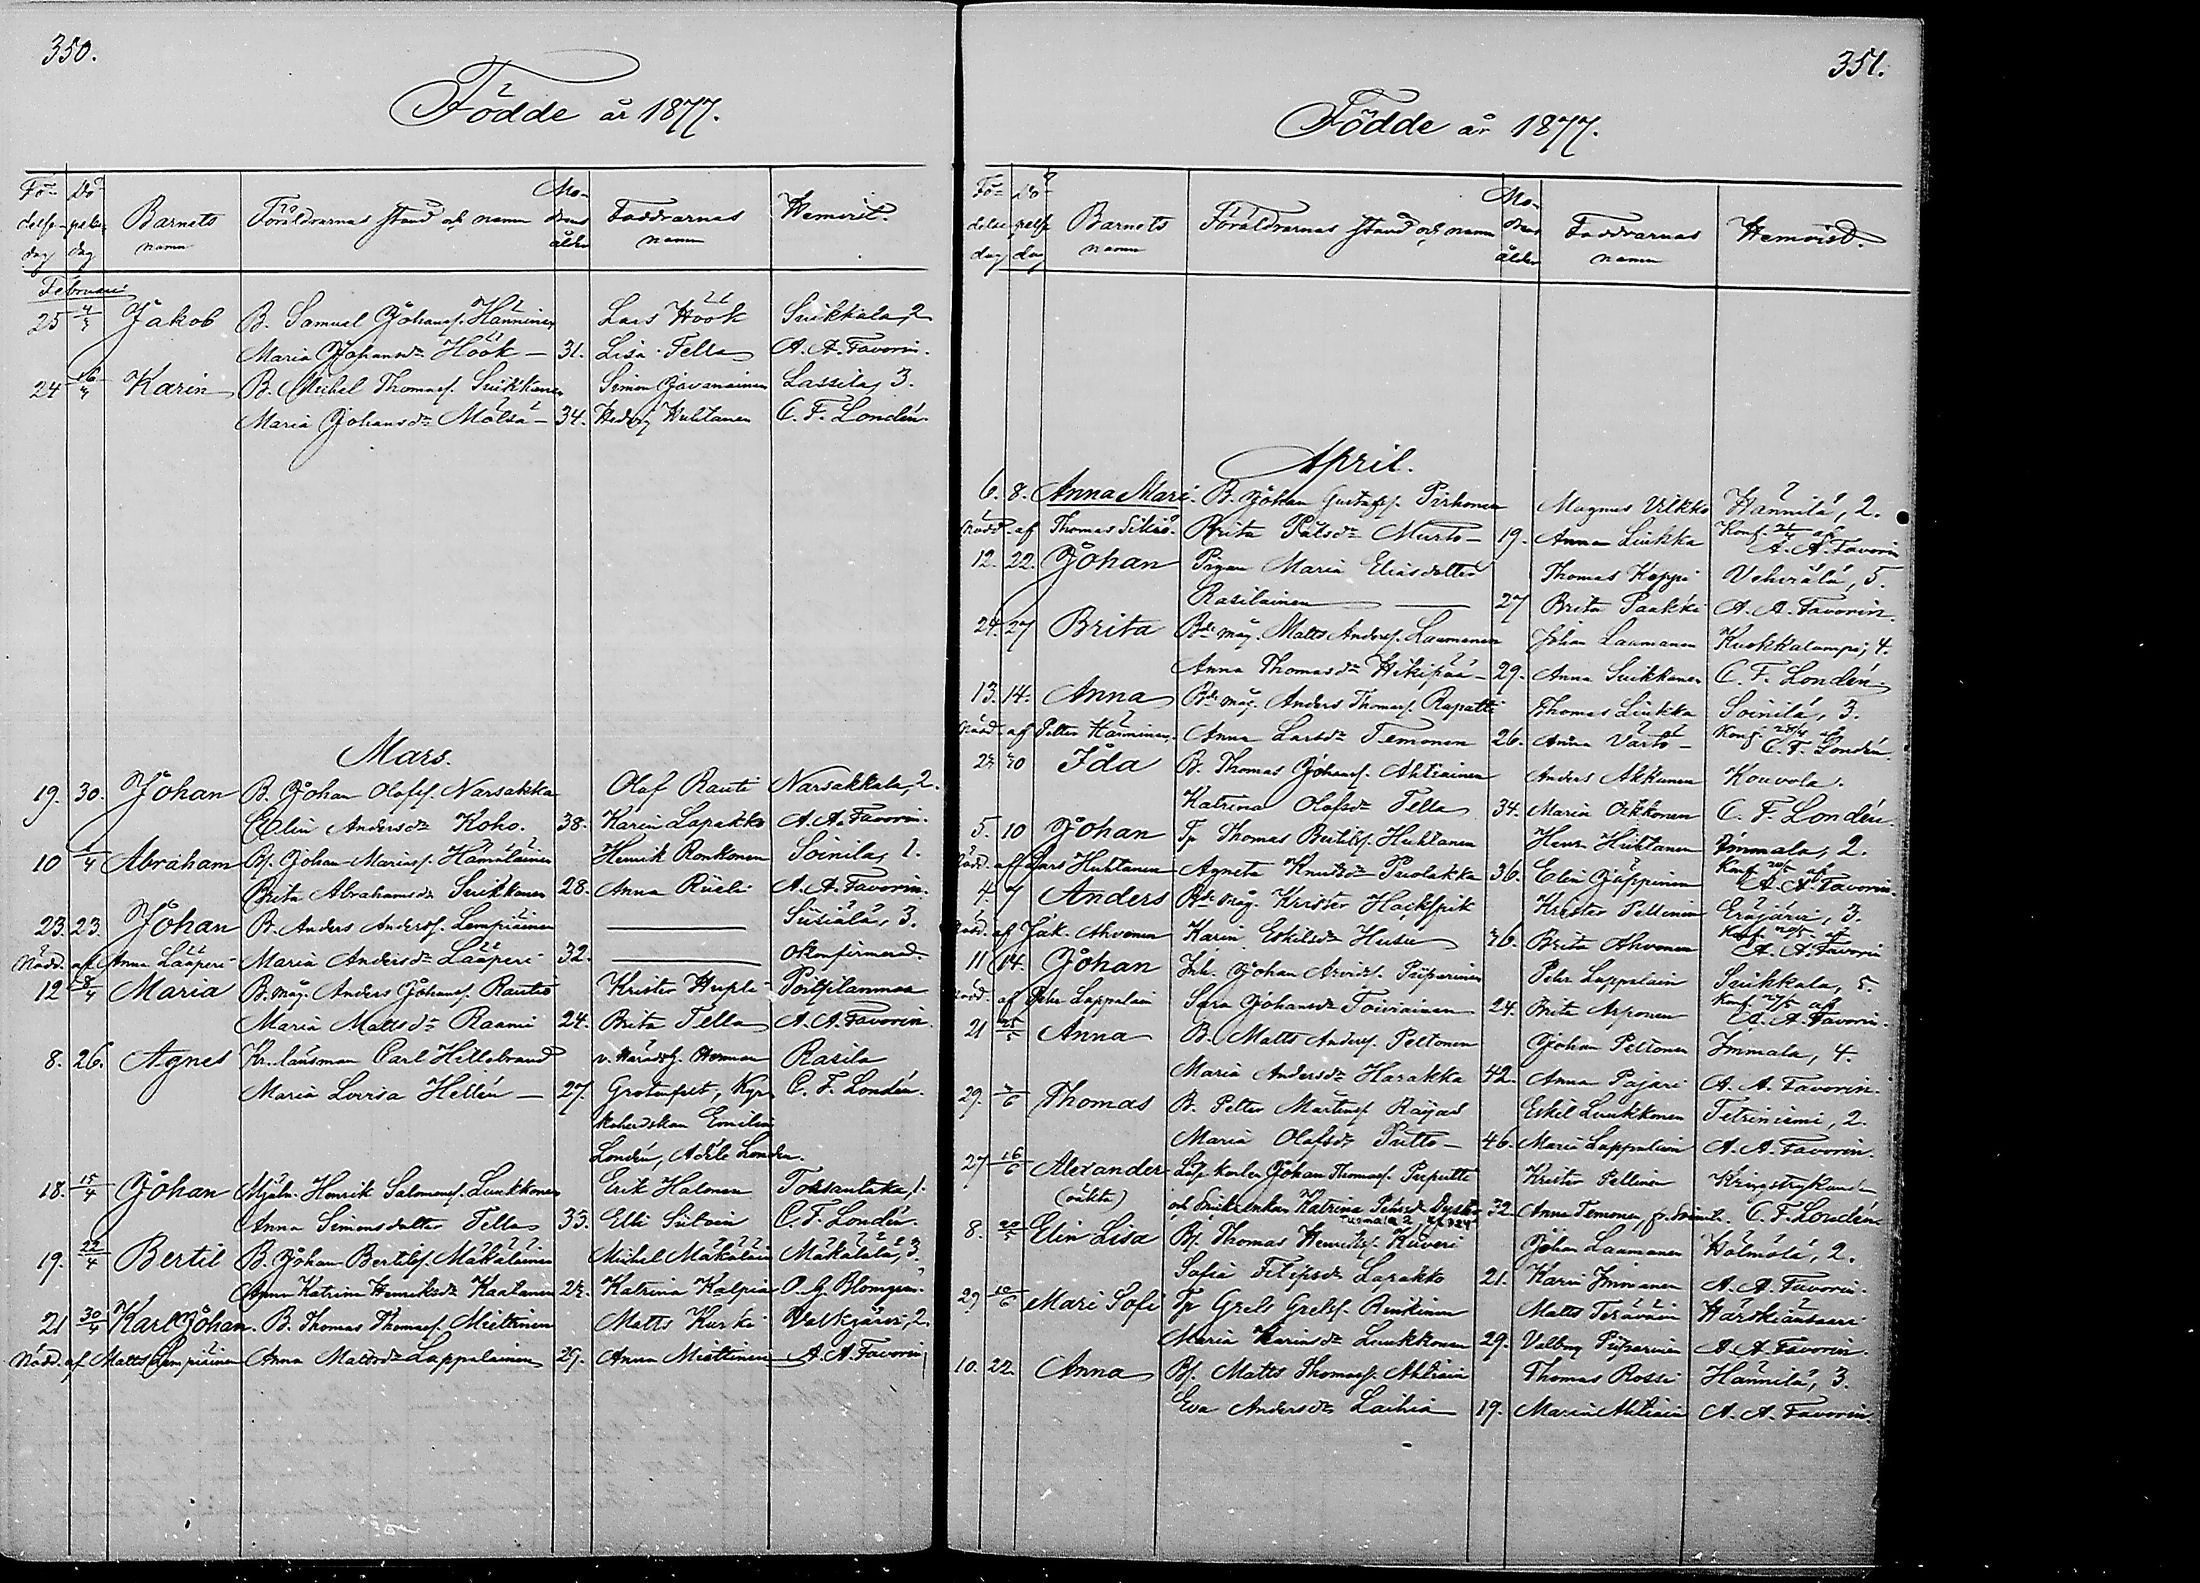 350.
Födde år 1877.
Fö- Dö- Mo-
delse- pelse- Barnets Föräldrarnas stånd och namn drens Faddrarnas Hemvist.
dag dag namn ålder namn
Februari
25 4/3 Jakob B. Samuel Johanss. Hänninen Lars Höök Suikkala, 2
Maria Johansdr Höök — 31. Lisa Tella A. A. Favorin.
24 Karin B. Michel Thomass. Suikkanen Simon Javanainen Lassila, 3.
Maria Johansdr Mälsä — 34. Hedvig Huhtanen C. F. Londén.
Mars.
19. 30. Johan B. Johan Olofss. Narsakka Olof Rauti Narsakkala, 2.
Elin Andersdr Koho. 38. Karin Lapakko A. A. Favorin.
10 1/4 Abraham Bs. Johan Mariass. Hämäläinen Henrik Ronkonen Soinila, 1.
Brita Abrahamsdr Suikkanen 28. Anna Rüeli A. A. Favorin.
23. 23. Johan B. Anders Anderss. Lempiäinen — Susiälä, 3.
Nödd. af Anna Lääperi Maria Andersdr Lääperi 32. — okonfirmerad
12 8/4 Maria B. måg. Anders Johanss. Rautio Krister Hupli Postilanmaa
Maria Mattsdr Raami 24. Brita Tella A. A. Favorin.
8. 26. Agnes Kr. länsman Carl Hillebrand v. Häradsh. Herman Rasila
Maria Lovisa Hellén — 27. Grotenfelt, Kyr- C. F. Londén.
koherdskan Emilia
Londén, Adéle Londén.
18. 15/4 Johan Mjöln. Henrik Salomonss. Luukkonen Erik Halonen Toksantaka, 1.
Anna Simonsdotter Tella 33. Elli Siitoin C. F. Londén.
19. 22/4 Bertil B. Johan Bertilss. Mäkäläinen Michel Mäkäläin Mäkälälä, 3.
Anna Katrina Henriksdr Kaalanen 22. Katrina Kalpia O. G. Blomgren.
21 30/4 Karl Johan. B. Thomas Thomass. Miettinen Matts Kurki Valkjärvi, 2.
Nödd. af Matts Lempiäinen Anna Mattsdr Lappalainen 29. Anna Miettinen A. A. Favorin
351.
Födde år 1877.
Fö- Dö- Mo-
delse- pelse Barnets Föräldrarnas stånd och namn drens Faddrarnas Hemvist.
dag dag namn ålder namn
April.
6. 8. Anna Mari. B. Johan Gustafss. Pirhonen Magnus Vilkko Hannila, 2.
Nödd. af Thomas Sikiö. Brita Pålsdr Murto — 19. Anna Liukka Konf. af A. A. Favorin
12. 22. Johan Pigan Maria Eliasdotter Thomas Koppi Vehvälä, 5.
Rasilainen — 27 Brita Paakki A. A. Favorin.
24. 27 Brita Bde måg. Matts Anderss. Laumanen Johan Laumanen Kuokkalampi, 4.
Anna Thomasdr Hikipää — 29. Anna Suikkanen C. F. Londén.
13. 14. Anna Bde måg. Anders Thomass. Rapatti Thomas Liukka Soinilä, 3.
Nödd. af Petter Hänninen. Anna Larsdr Temonen 26. Anna Värtö — Konf. 28/4 af C. F. Londén.
Ida B. Thomas Johanss. Ahtiainen Anders Akkanen Kouvola.
Katrina Olofsdr Tella 34. Maria Oikkonen C. F. Londén.
5. 10 Johan Tp Thomas Bertilss. Huhtanen Henr. Huhtanen Immala, 2.
Nödd. af Lars Huhtanen Agneta Knutsdr Puolakka 36. Elin Jäppinen Konf. 20/5 af A. A. Favorin.
4. 7 Anders Bde måg. Krister Hackspik Krister Pellinen Eräjärvi, 3.
Nödd. af Jak. Ahvonen Karin Eskilsdr Husu 36. Brita Ahvonen Konf. 20/5 af A. A. Favorin
11 14. Johan Inh. Johan Arvidss. Piiparinen Pehr Lappalain Suikkala, 5.
Nödd. af Pehr Lappalain Sara Johansdr Toiviainen 24. Brita Asponen Konf. 20/5 af A. A. Favorin.
21 25/5 Anna B. Matts Anderss. Peltonen Johan Peltonen Immala, 4.
Maria Andersdr Harakka 42. Anna Pajari A. A. Favorin.
29. Thomas B. Petter Mårtenss. Eskil Luukkonen Tetriniemi, 2.
Maria Olofsdr Putto — 46. Maria Lappalain A. A. Favorin.
27 16/6 Alexander Lösp. karlen Johan Thomass. Puputti Krister Pellinen Kringstrykande
(oäkta) och Enkan Katrina Petersdr Dyster 32. Anna Temonen, C. F. Londén
8. 20/5 Elin Lisa Bs. Thomas Henrikss. Kuveri Johan Laumanen Holmölä, 2.
Sofia Filipsdr Lapakko 21. Karin Immanen A. A. Favorin.
29 10/6 Mari Sofi Tp Grels Grelss. Reinikinen Matts Teräväin Härskiänsaari
Maria Karinsdr Luukkonen 29. Valborg Piiparinen A. A. Favorin.
10. 22. Anna Bs. Matts Thomass. Ahtiain Thomas Rossi Hännilä, 3.
Eva Andersdr Laihia 19. Maria Ahtiain A. A. Favorin.